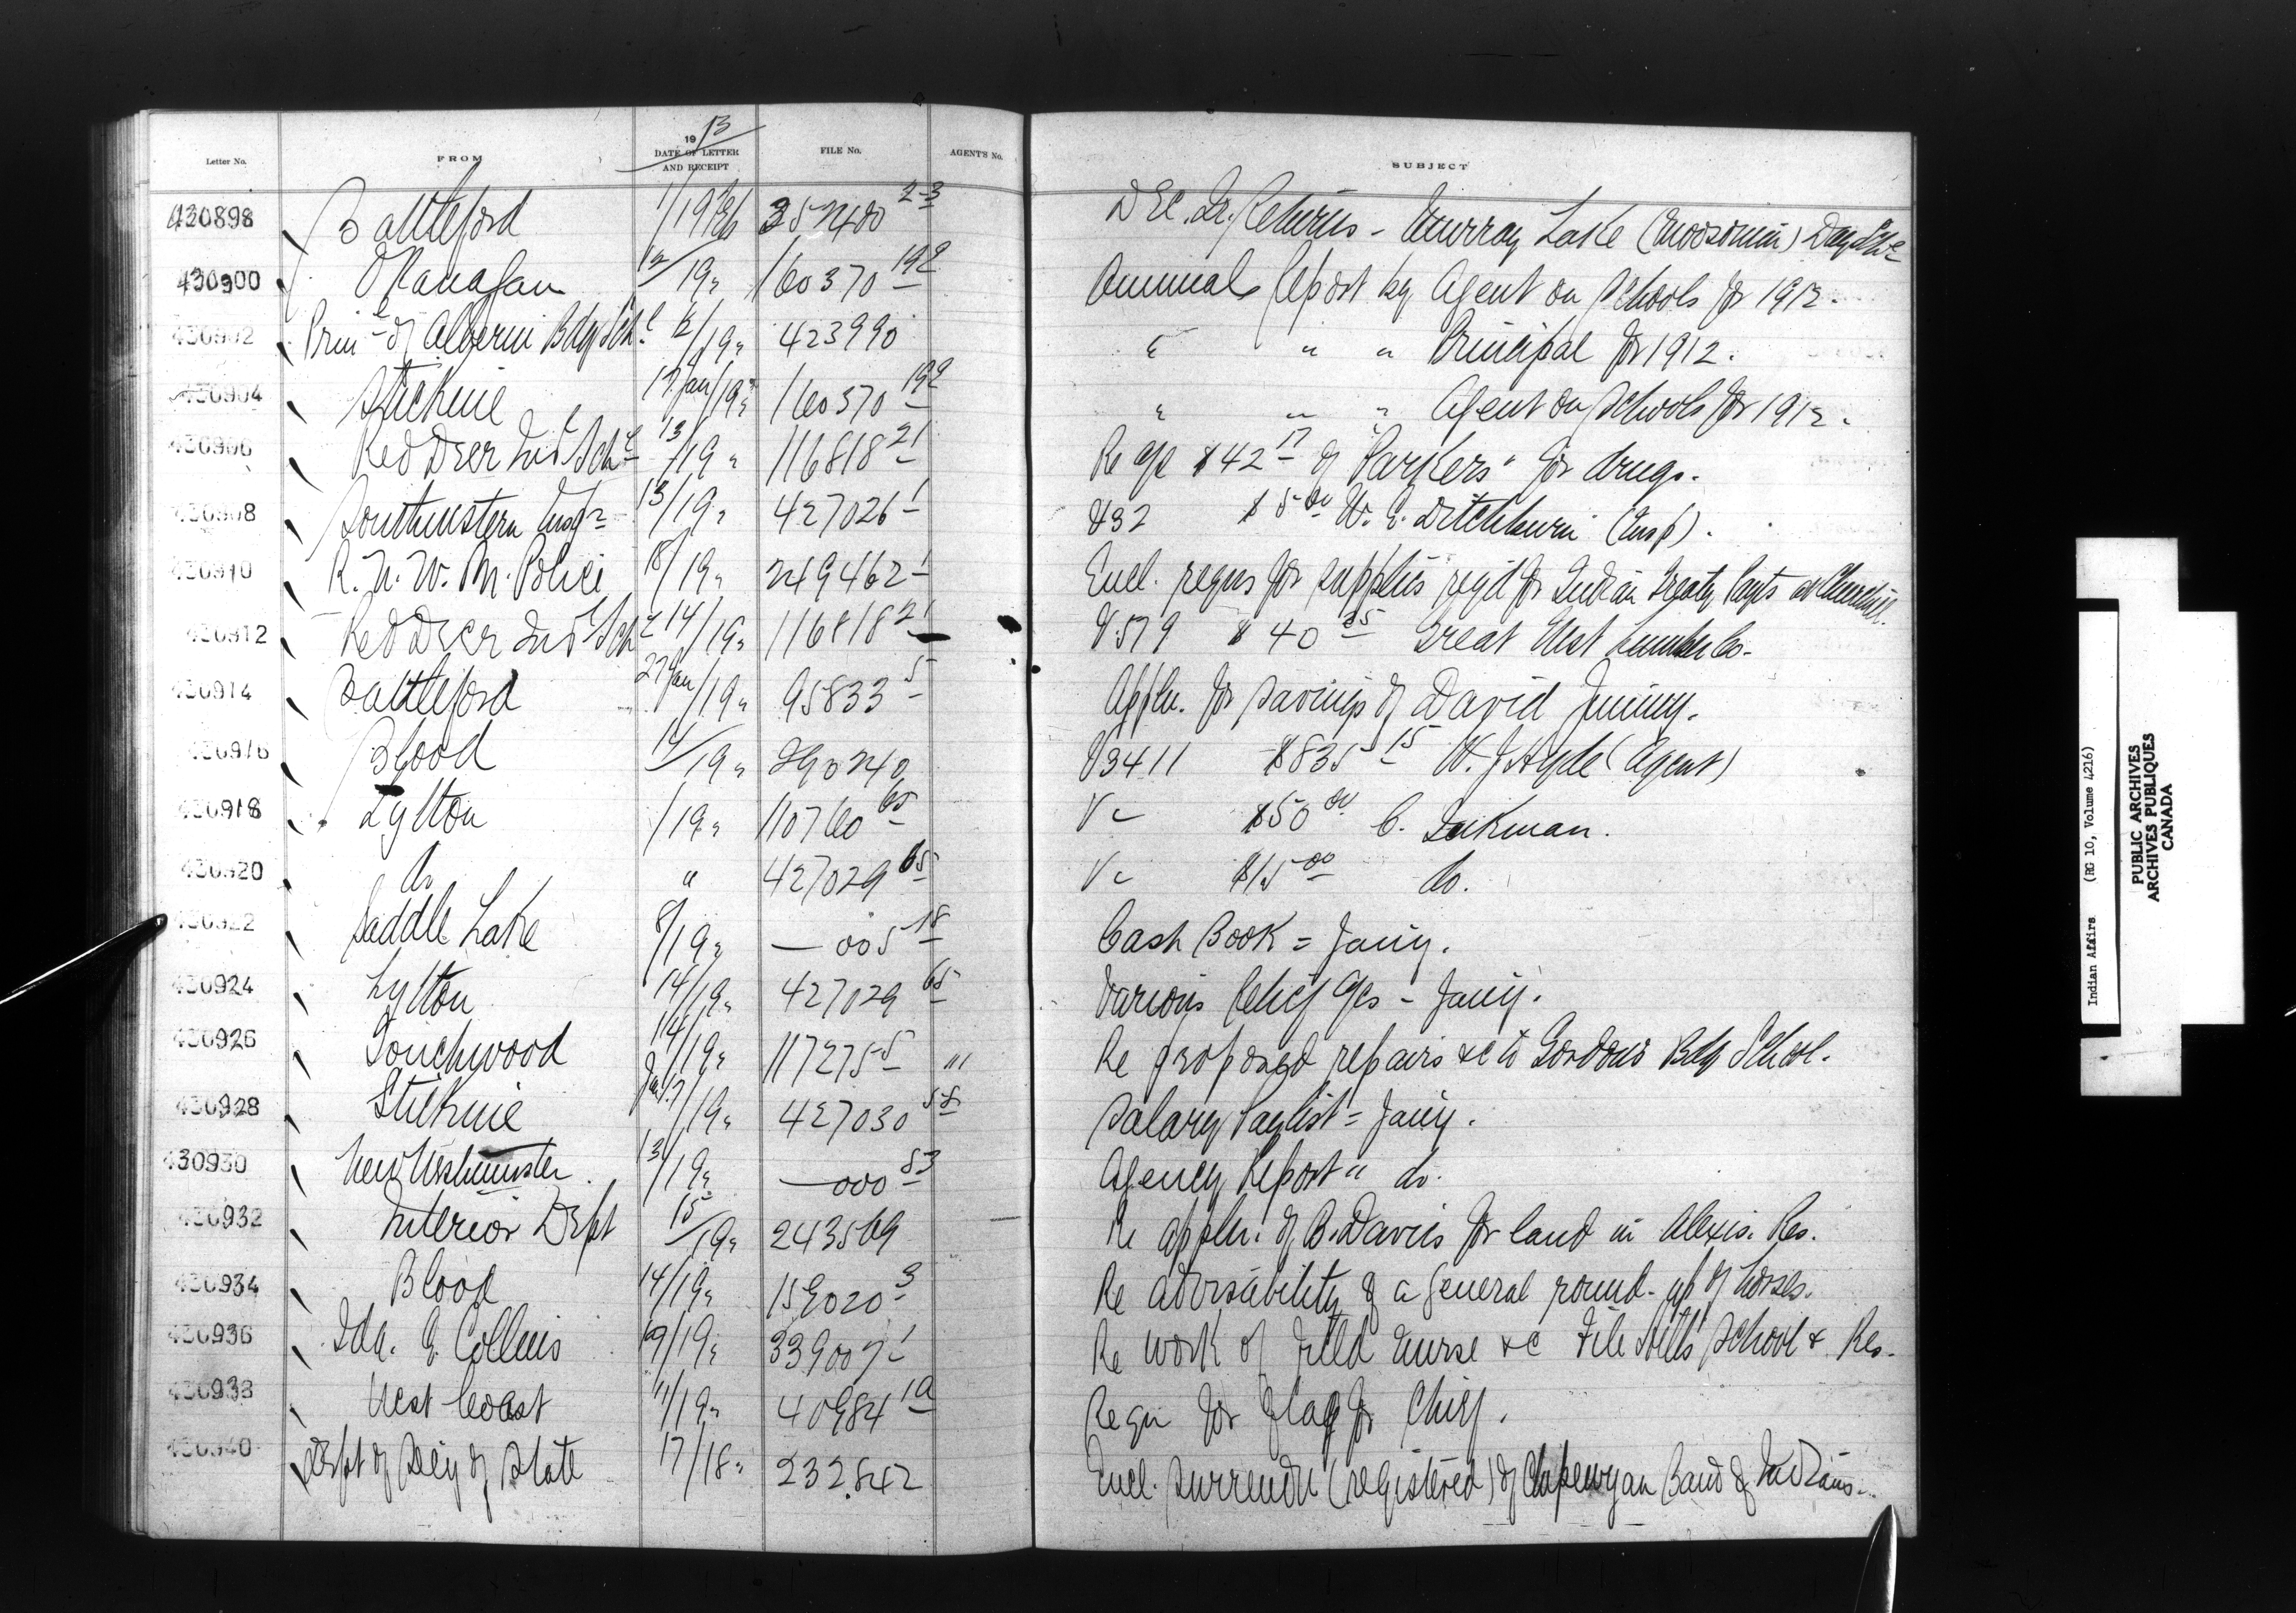 19 13
Letter No. FROM DATE OF LETTER AND RECEIPT FILE No. AGENT'S No. SUBJECT
430898 Battleford 1/19 357400 2-3 Dec. Qr. Returns - Murray Lake (Moosomin) Day Sch
430900 Okanagan 12/19 " 160370 19½ Annual Report by Agent on Schools for 1912.
430902 Prin of Alberni Bdg Schl 12/19 " 423990 " " " Principal for 1912.
430904 Stickine 17 Jan/19 " 160370 19½ " " " Agent on Schools for 1912.
430906 Red Deer Ind Schl 13/19 " 116818 21 Re a/c $42 17 of "Parkers" for drugs.
430908 Southwestern Insp 13/19 " 427026-1 V32 $5 00 W. E. Ditchburn (Insp).
430910 R. N. W. M. Police 18/19 " 249462-1 Encl. reqns for supplies reqd for Indian Treaty Payts at Churchill.
430912 Red Deer Ind Schl 14/19 " 116818 21 V579 $40 25 Great West Lumber Co.
430914 Battleford 27 Jan/19 " 95833 5 Appln. for savings of David Jimmy.
430916 Blood 14/19 " 290240 V3411 $835 15 W. J. Hyde (Agent)
430918 Lytton /19 " 110760 65 V " $50 00 C.
430920 do " 427029 65 V " $15 00 do.
430922 Saddle Lake 8/19 " — 005 18 Cash Book = Jany.
430924 Lytton 14/19 " 427029 65 Various Relief a/cs - Jany.
430926 Touchwood 14/19 " 117275-5 "" Re proposed repairs &c to Gordons Bdg School.
430928 Stickine Jan 17/19 " 427030 58 Salary Paylist = Jany.
430930 New Westminster. 13/19 " — 000 83 Agency Report " do.
430932 Interior Dept 15/19 " 243569 Re appln. of B. Davis for land in Alexis. Res.
430934 Blood 14/19 " 159020 3 Re advisability of a general round-up of horses.
430936 Ida. E. Collins 19/19 " 339007-1 Re work of Field Nurse &c File Hills School & Res.
430938 West Coast 11/19 " 40984 1A Reqn for flag for Chief.
430940 Dept of Secy of State 17/18 " 232.842 Encl. surrender (registered) of Chipewyan Band of Indians.
Indian Affairs (RG 10, Volume 4216)
PUBLIC ARCHIVES
ARCHIVES PUBLIQUES
CANADA